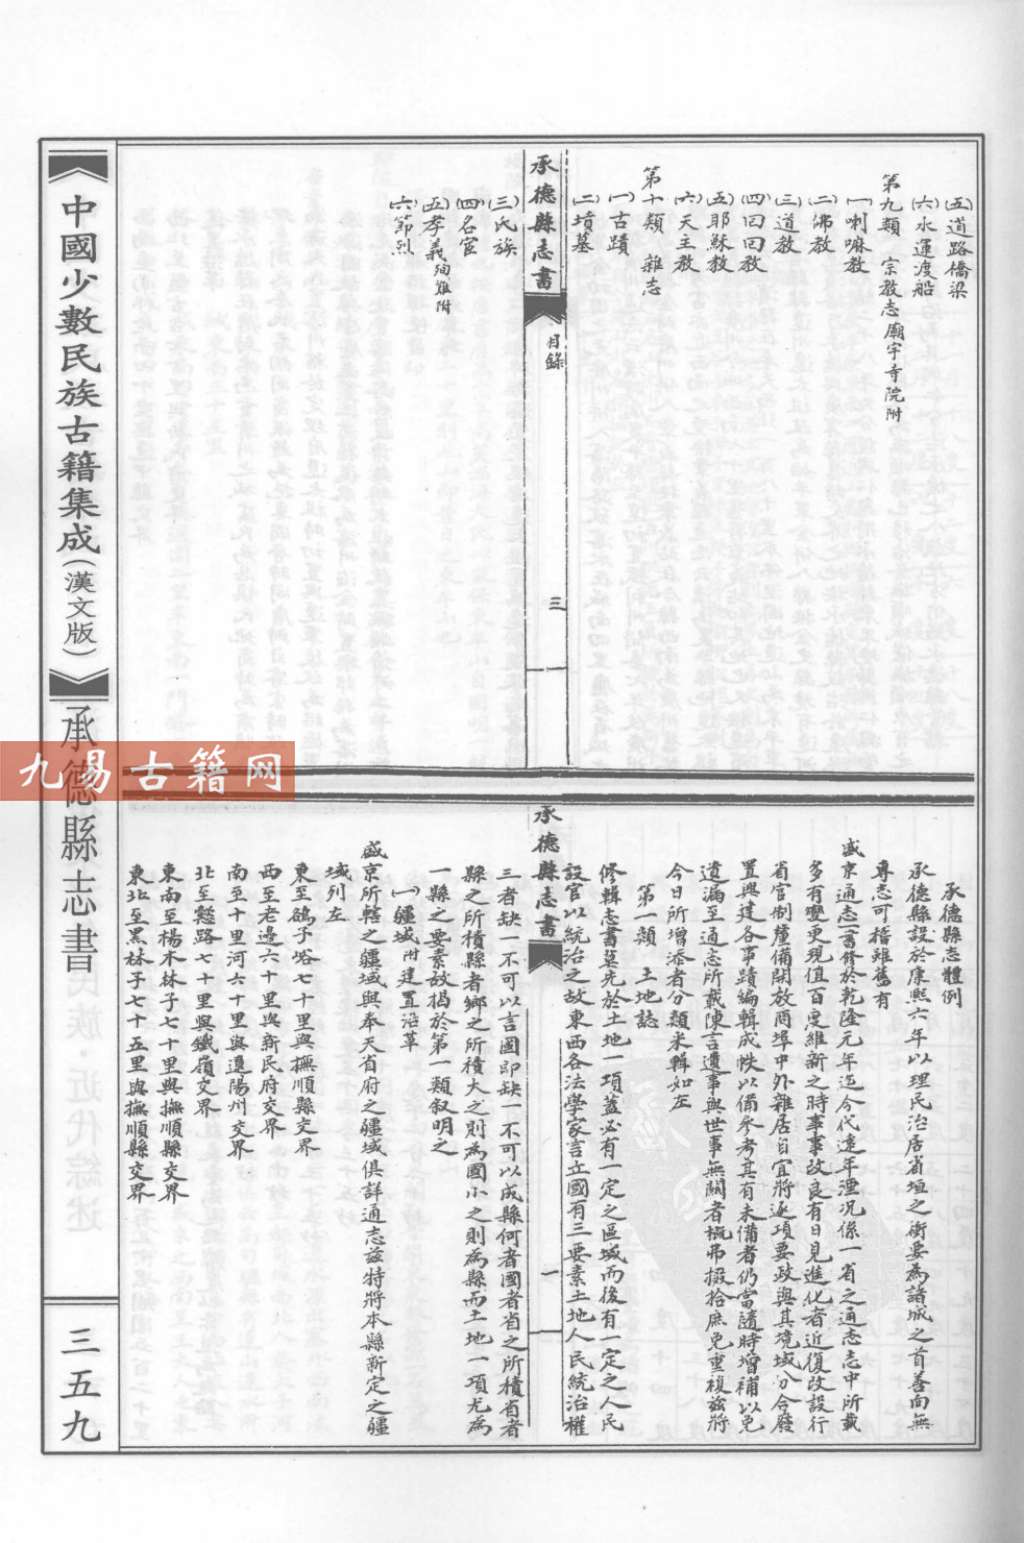 ㈤道路橋梁
㈥水運渡船
第九類　宗教志廟宇寺院附
㈠喇嘛教
㈡佛教
㈢道教
㈣回回教
㈤耶穌教
㈥天主教
第十類　雜志
㈠古蹟
㈡墳墓
承德縣志書
目錄
三
㈢氏族
㈣名宦
㈤孝義殉難附
㈥節烈
承德縣志體例
承德縣設於康熙六年以理民治居省垣之衝要為諸城之首善向無
專志可稽雖舊有
盛京通志一書修於乾隆元年迄今代遠年湮況係一省之通志志中所載
多有變更現值百度維新之時事事改良有日見進化者近復改設行
省官制釐備開放商埠中外雜居自宜將逐項要政與其境域分合廢
置興建各事蹟編輯成帙以備參考其有未備者仍當隨時增補以免
遺漏至通志所載陳言遺事與世事無關者概弗掇拾庶免重複茲將
今日所增添者分類采輯如左
第一類　土地誌
修輯志書莫先於土地一項蓋必有一定之區域而後有一定之人民
設官以統治之故東西各法學家言立國有三要素土地人民統治權
承德縣志書
一
三者缺一不可以言國即缺一不可以成縣何者國者省之所積省者
縣之所積縣者鄉之所積大之則為國小之則為縣而土地一項尤為
一縣之要素故揭於第一類叙明之
㈠疆域附建置沿革
盛京所轄之疆域與奉天省府之疆域俱詳通志茲特將本縣新定之疆
域列左
東至鴿子峪七十里與撫順縣交界
西至老邊六十里與新民府交界
南至十里河六十里與遼陽州交界
北至懿路七十里與鐵嶺交界
東南至楊木林子七十里與撫順縣交界
東北至黑林子七十五里與撫順縣交界
中國少數民族古籍集成(漢文版)
承德縣志書
三五九
九易古籍网